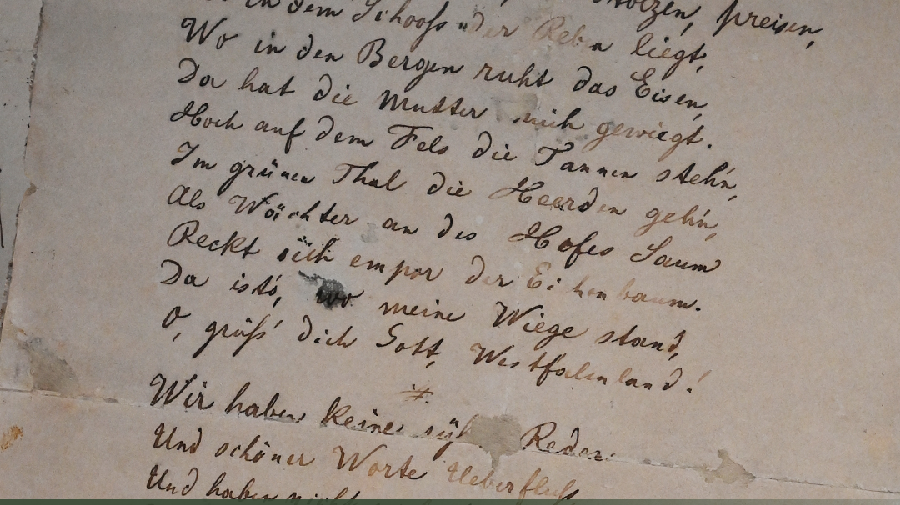 in dem Schooß der Reben liegt,
Wo in den Bergen ruht das Eisen,
Da hat die Mutter mich gewiegt.
Hoch auf dem Fels die Tannen steh'n,
Im grünen Thal die Heerden geh'n,
Als Wächter an des Hofes Saum
Reckt sich empor der Eichenbaum.
Da ist's, wo meine Wiege stand,
O, grüß' dich Gott, Westfalenland!
#
Wir haben keine Reden
Und schöner Worte Ueberfluß
Und haben nicht